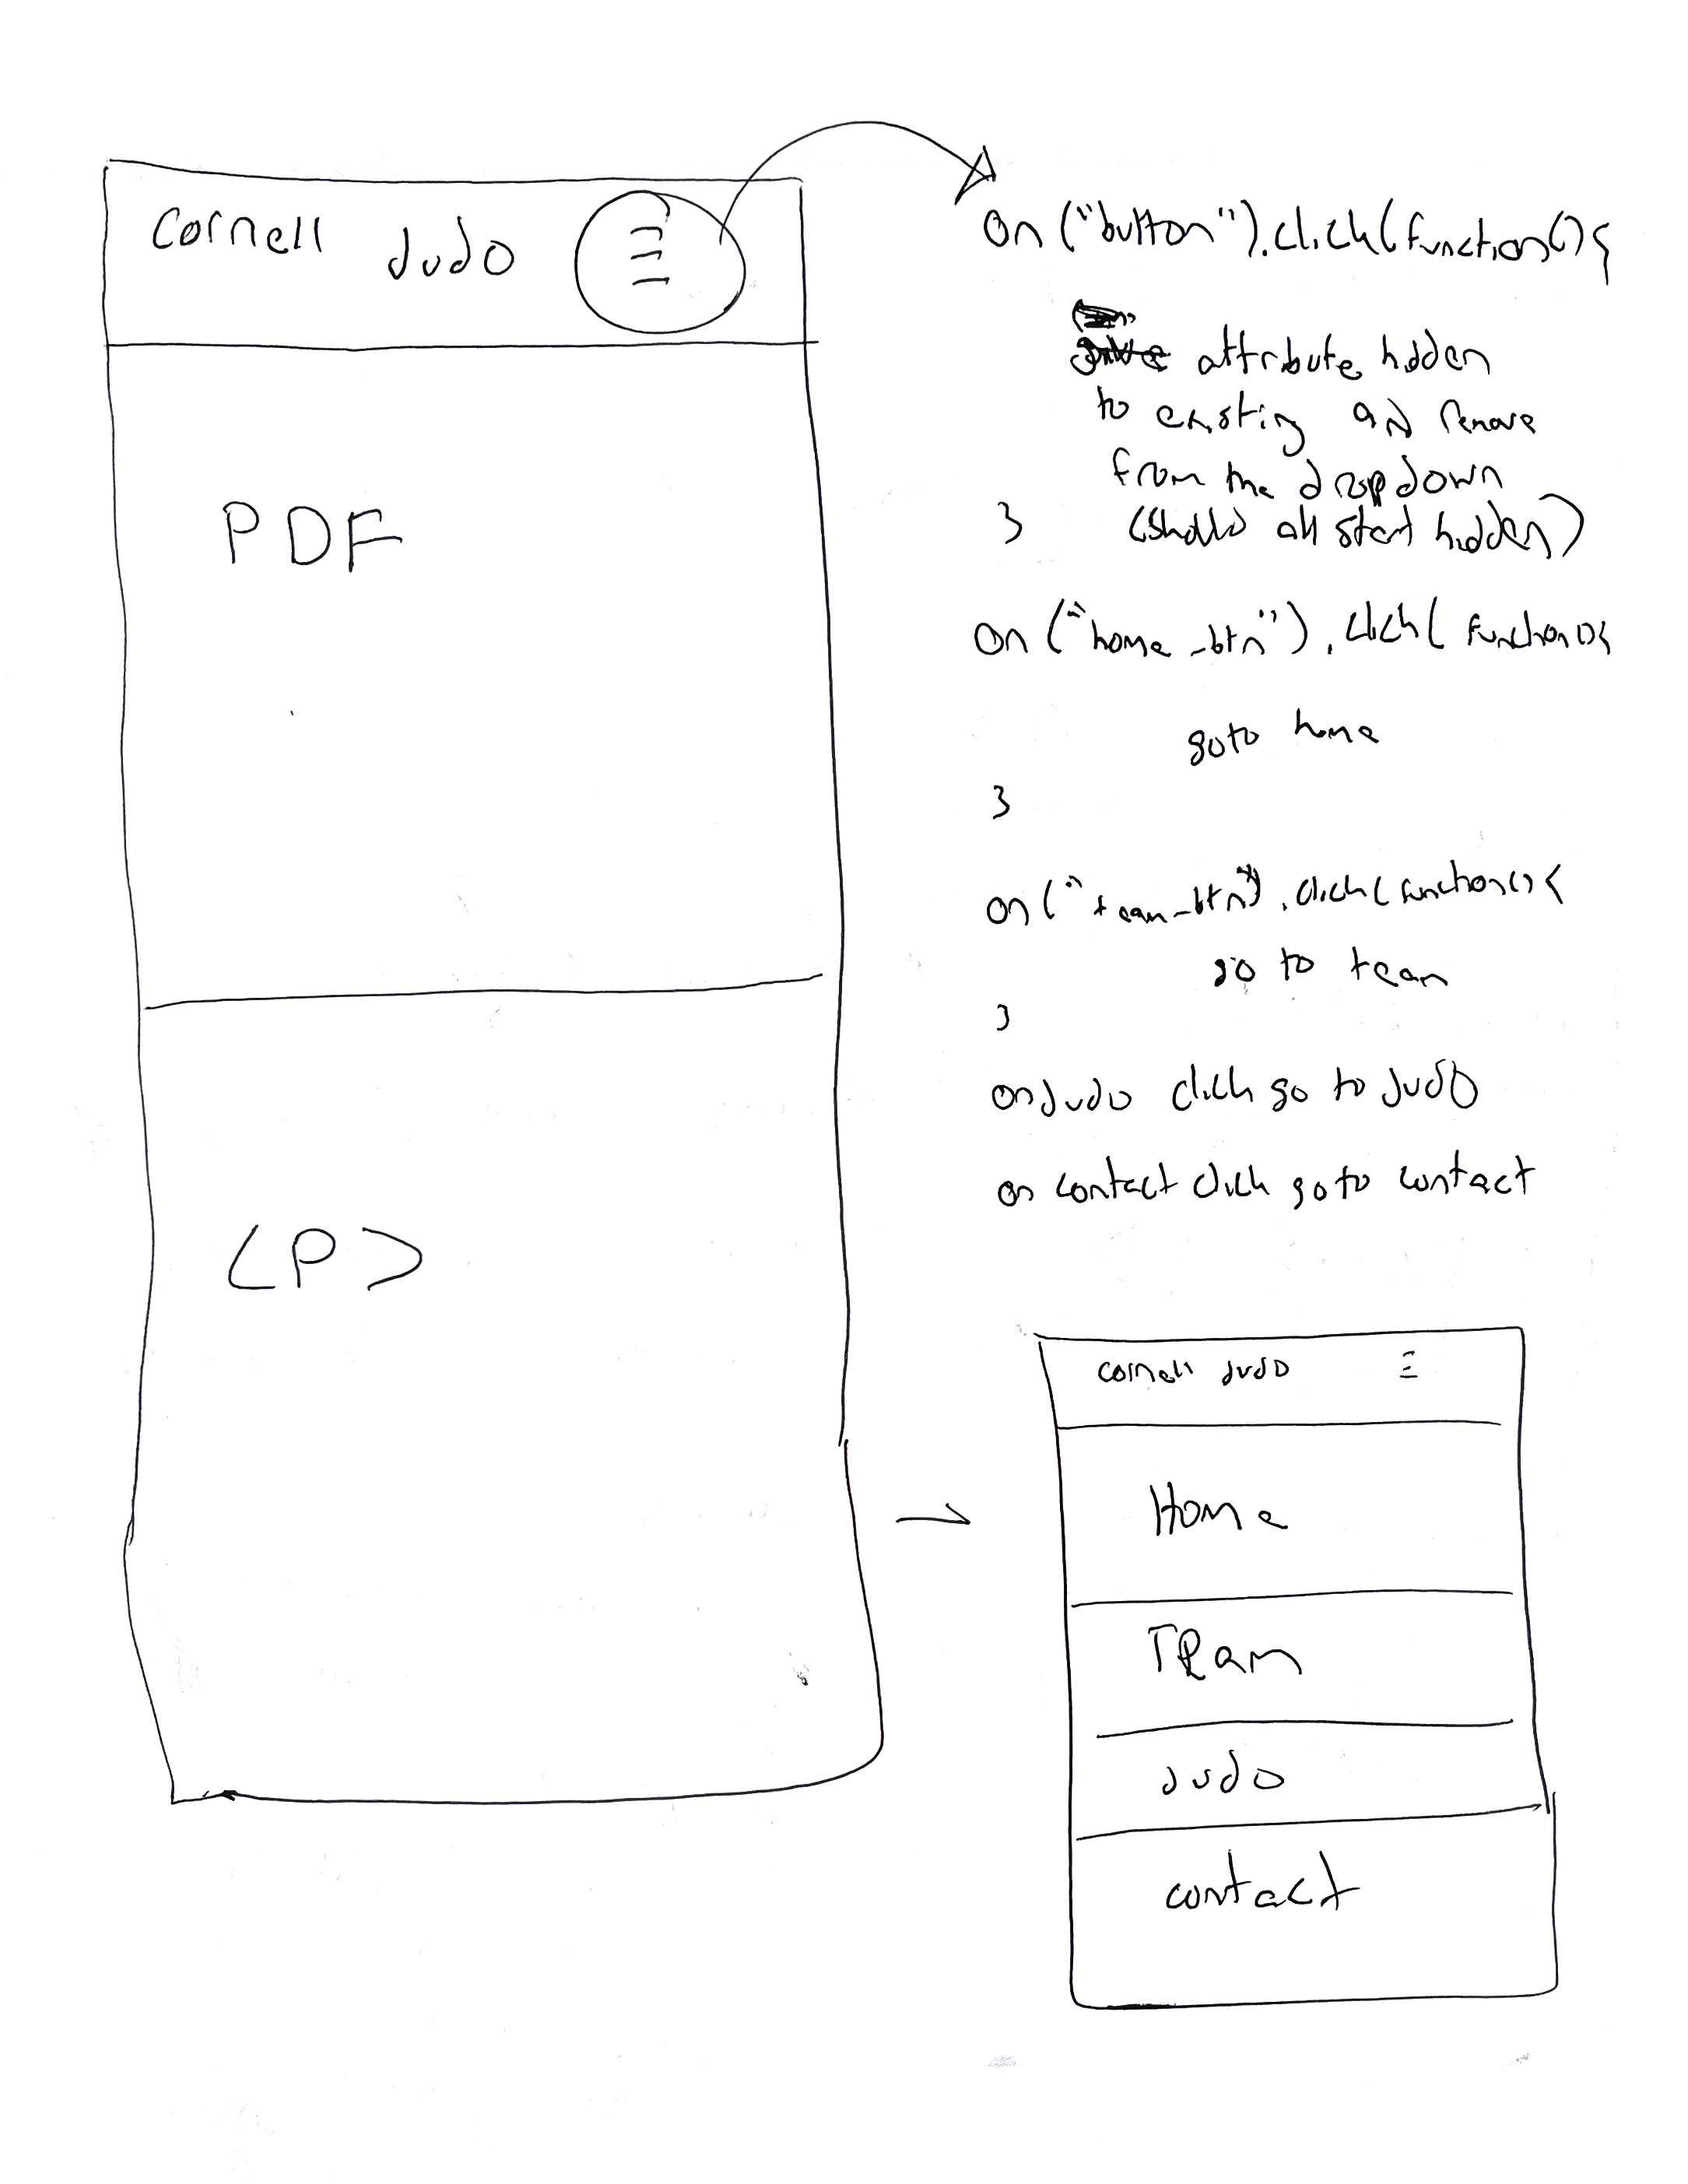 Cornell Judo Ξ
PDF
<P>
on ("button").click(function(){
attribute hidden
to existing and remove
from the dropdown
(should all start hidden)
}
on ("home_btn").click(function(){
goto home
}
on ("team_btn").click(function(){
go to team
}
on Judo click go to Judo
on contact click go to contact
Cornell Judo Ξ
Home
Team
Judo
contact